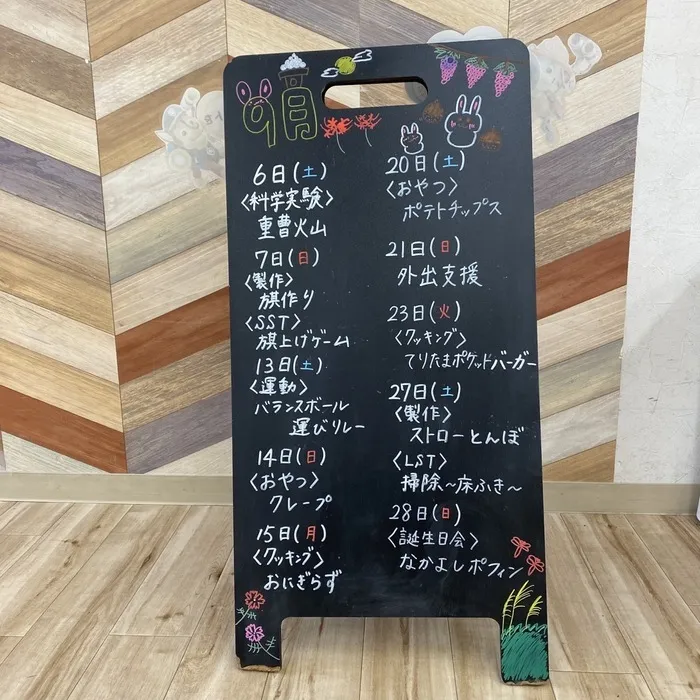 9月
6日(土)
〈科学実験〉
重曹火山
7日(日)
〈製作〉
旗作り
〈SST〉
旗上げゲーム
13日(土)
〈運動〉
バランスボール
運びリレー
14日(日)
〈おやつ〉
クレープ
15日(月)
〈クッキング〉
おにぎらず
20日(土)
〈おやつ〉
ポテトチップス
21日(日)
外出支援
23日(火)
〈クッキング〉
てりたまポケットバーガー
27日(土)
〈製作〉
ストローとんぼ
〈LST〉
掃除〜床ふき〜
28日(日)
〈誕生日会〉
なかよしポフィン